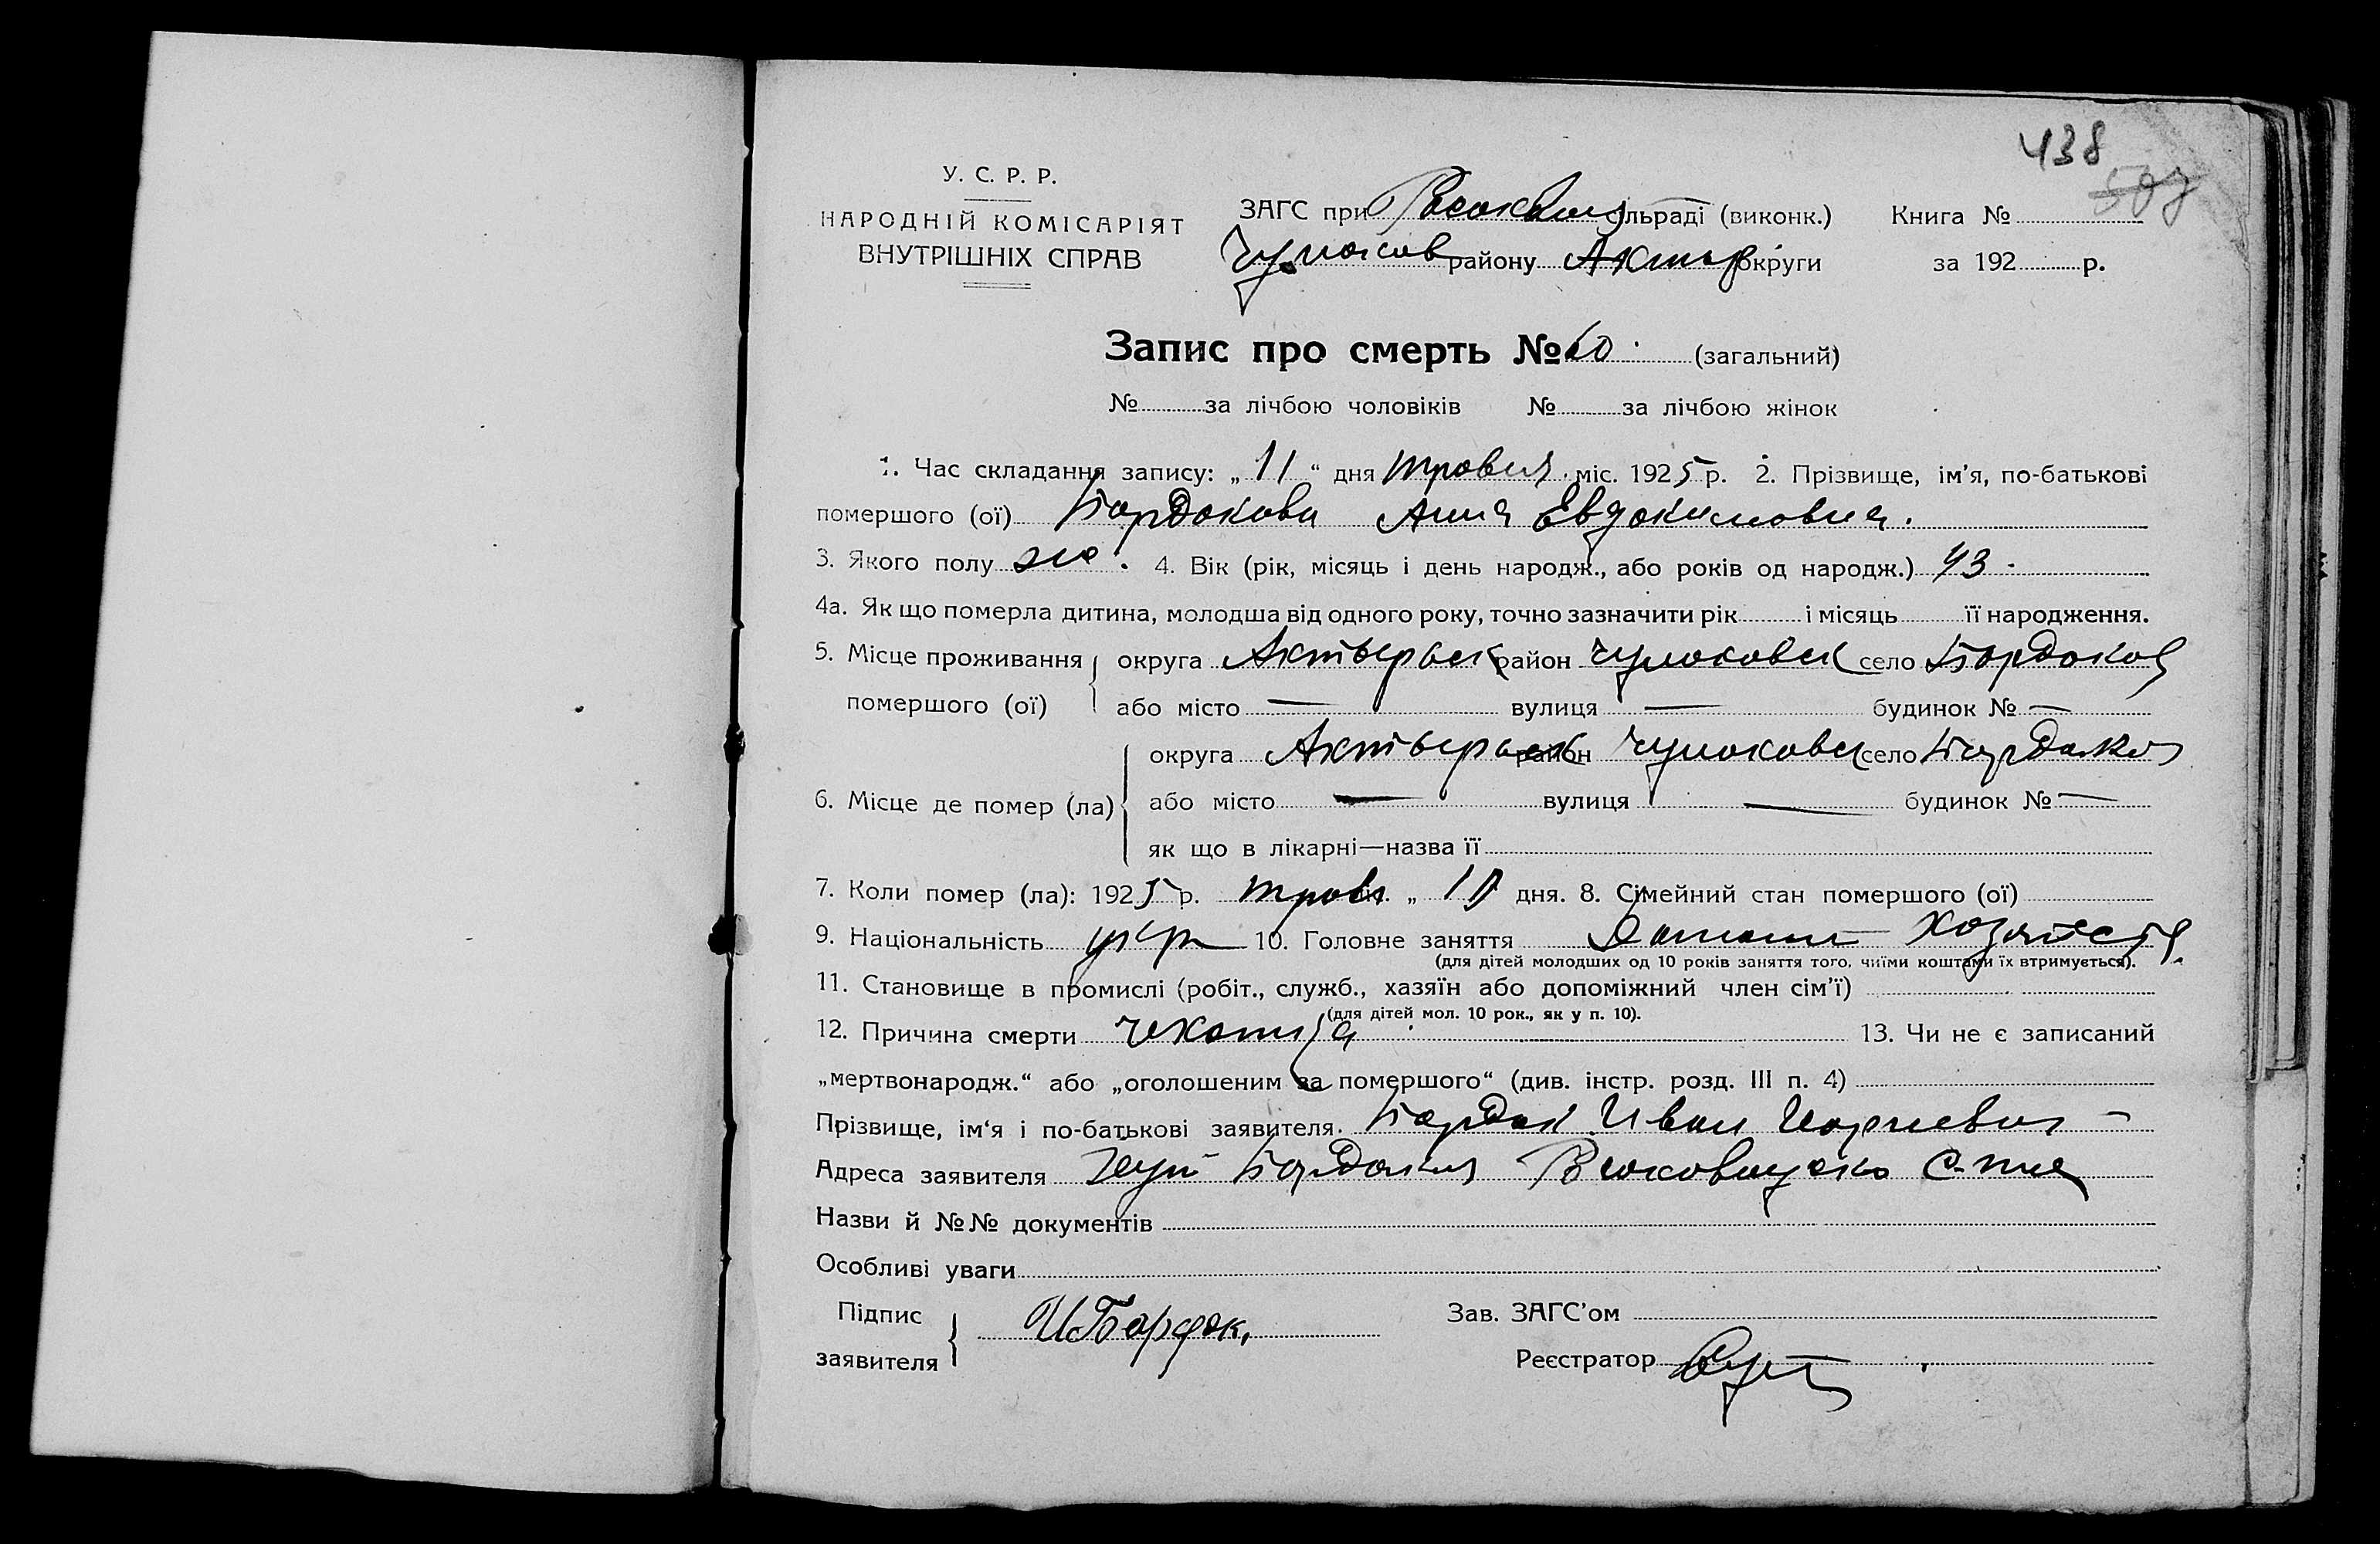 438
507
У. С. Р. Р.
НАРОДНІЙ КОМІСАРІЯТ
ВНУТРІШНІХ СПРАВ
ЗАГС при сільраді (виконк.) Книга №
району Актыр округи за 192 р.
Запис про смерть № 60 (загальний)
№ за лічбою чоловіків № за лічбою жінок
1. Час складання запису: „ 11 “ дня травня міс. 1925 р. 2. Прізвище, ім’я, по-батькові
помершого (ої) Бардакова Анна Евдокимовна.
3. Якого полу жо. 4. Вік (рік, місяць і день народж., або років од народж.) 43.
4а. Як що померла дитина, молодша від одного року, точно зазначити рік і місяць її народження.
5. Місце проживання округа Актырськ район Чупаховск село Бардаков
помершого (ої) або місто — вулиця — будинок № —
округа Актырськ район Чупаховск село Бардаков
6. Місце де помер (ла) або місто — вулиця — будинок № —
як що в лікарні—назва її
7. Коли помер (ла): 1925 р. травн міс. „ 10 дня. 8. Сімейний стан помершого (ої)
9. Національність укр 10. Головне заняття
(для дітей молодших од 10 років заняття того, чиїми коштами їх втримується).
11. Становище в промислі (робіт., служб., хазяїн або допоміжний член сім’ї)
(для дітей мол. 10 рок., як у п. 10).
12. Причина смерти чехотка 13. Чи не є записаний
„мертвонародж.“ або „оголошеним за помершого“ (див. інстр. розд. III п. 4)
Прізвище, ім‘я і по-батькові заявителя. Бардак Иван
Адреса заявителя хут Бардаков
Назви й №№ документів
Особливі уваги
Підпис
заявителя И Бардак,
Зав. ЗАГС’ом
Реєстратор